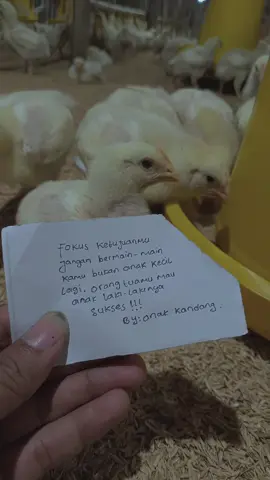 Fokus Ketujuanmu
jangan bermain-main
kamu bukan anak kecil
lagi. orang tuamu mau
anak laki-lakinya
sukses !!!
By: anak kandang.